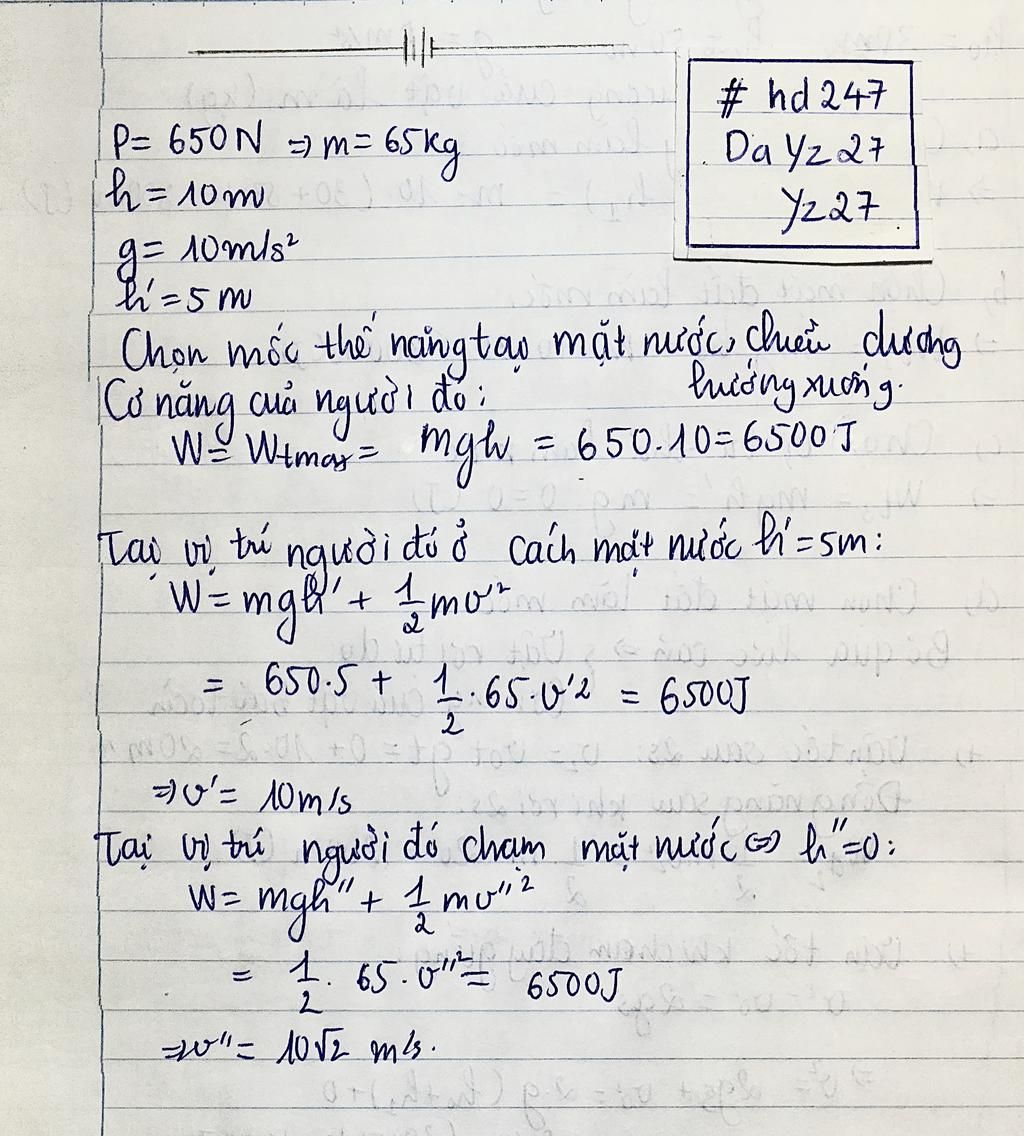 # hd247
Da Yz27
Yz27
P= 650N ⇒ m= 65kg
h = 10m
g= 10m/s²
h' = 5m
Chọn mốc thế năng tạo mặt nước, chiều dương
hướng xuống.
Cơ năng của người đó:
W= Wtmax= mgh = 650.10=6500J
Tại vị trí người đó ở cách mặt nước h'=5m:
W= mgh' + 1/2 mv'²
= 650.5 + 1/2 .65.v'² = 6500J
⇒ v' = 10m/s
Tại vị trí người đó chạm mặt nước ⇔ h''=0:
W= mgh'' + 1/2 mv''²
= 1/2 . 65.v''² = 6500J
⇒ v'' = 10√2 m/s.